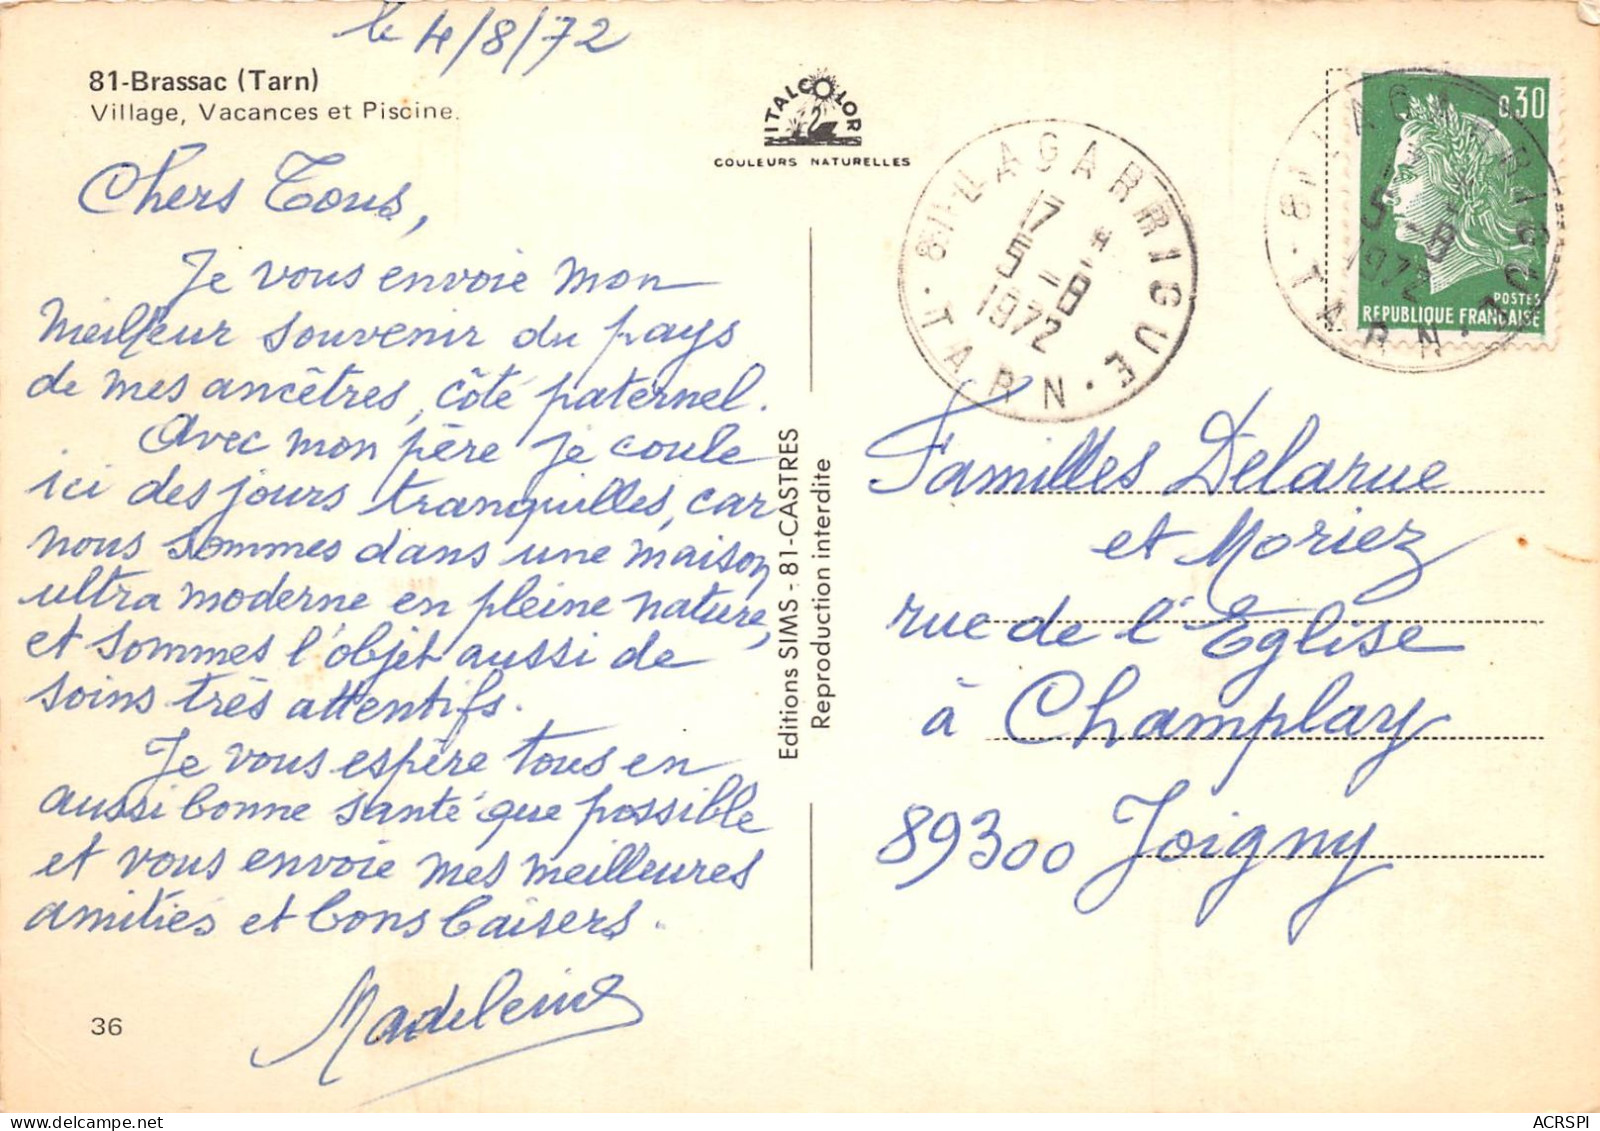 le 4/8/72
81-Brassac (Tarn)
Village, Vacances et Piscine.
Chers Tous,
Je vous envoie mon
meilleur souvenir du pays
de mes ancêtres, côté paternel.
Avec mon père je coule
ici des jours tranquilles, car
nous sommes dans une maison
ultra moderne en pleine nature,
et sommes l'objet aussi de
soins très attentifs.
Je vous espère tous en
aussi bonne santé que possible
et vous envoie mes meilleures
amitiés et bons baisers.
Madeleine
36
ITALCOLOR
COULEURS NATURELLES
Editions SIMS - 81-CASTRES
Reproduction interdite
81-LAGARRIGUE
17 *
5 -8
1972
TARN
0,30
POSTES
REPUBLIQUE FRANÇAISE
81-LAGARRIGUE
5 -8
1972
TARN
Familles Delarue
et Moriez
rue de l'Eglise
à Champlay
89300 Joigny
ACRSPI